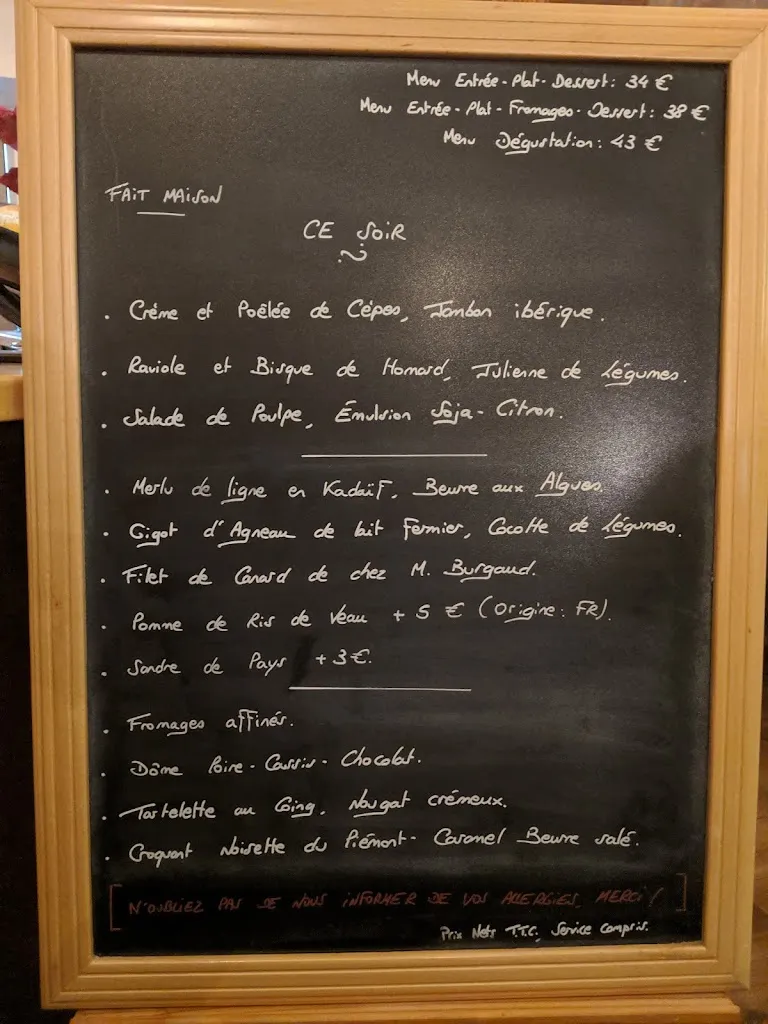 Menu Entrée - Plat - Dessert : 34 €
Menu Entrée - Plat - Fromages - Dessert : 38 €
Menu Dégustation : 43 €
FAIT MAISON
CE SOIR
. Crème et Poêlée de Cépes, Jambon ibérique.
. Raviole et Bisque de Homard, Julienne de Légumes.
. Salade de Poulpe, Émulsion Soja - Citron.
. Merlu de ligne en Kadaïf, Beurre aux Algues.
. Gigot d'Agneau de lait Fermier, Cocotte de Légumes.
. Filet de Canard de chez M. Burgaud.
. Pomme de Ris de Veau + 5 € (Origine : FR).
. Sandre de Pays + 3 €.
. Fromages affinés.
. Dôme Poire - Cassis - Chocolat.
. Tartelette au Coing, Nougat crémeux.
. Croquant Noisette du Piémont - Caramel Beurre salé.
[N'OUBLIEZ PAS DE NOUS INFORMER DE VOS ALLERGIES, MERCI !]
Prix Nets T.T.C, Service compris.